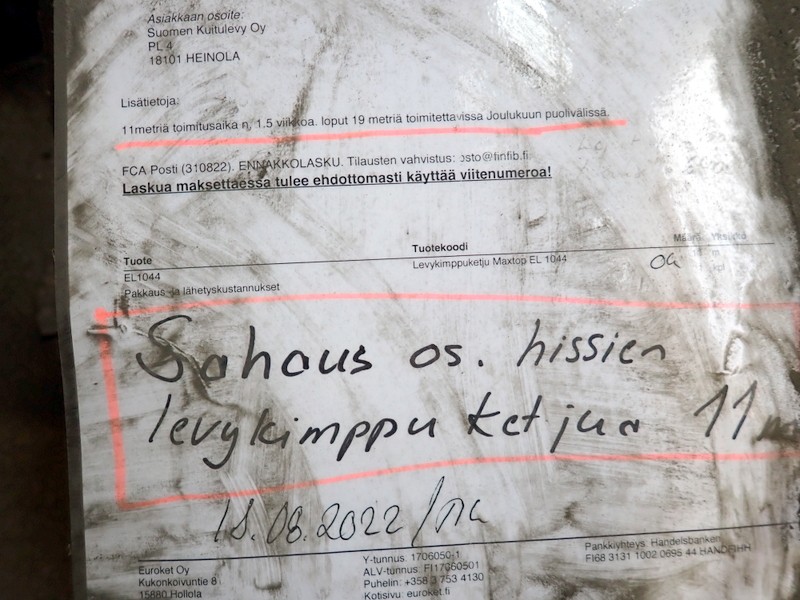 Asiakkaan osoite:
Suomen Kuitulevy Oy
PL 4
18101 HEINOLA
Lisätietoja:
11metriä toimitusaika n. 1.5 viikkoa. loput 19 metriä toimitettavissa Joulukuun puolivälissä.
FCA Posti (310822). ENNAKKOLASKU. Tilausten vahvistus: osto@finfib.fi
Laskua maksettaessa tulee ehdottomasti käyttää viitenumeroa!
Tuote Tuotekoodi Määrä Yksikkö
EL1044 Levykimppuketju Maxtop EL 1044 m
Pakkaus- ja lähetyskustannukset kpl
Sahaus os. hissien
levykimppu ketjua 11m
18.08.2022/
Euroket Oy Y-tunnus 1706050-1 Pankkiyhteys: Handelsbanken
Kukonkoivuntie 8 ALV-tunnus: FI17060501 FI68 3131 1002 0695 44 HANDFIHH
15880 Hollola Puhelin: +358 3 753 4130
Kotisivu: euroket.fi